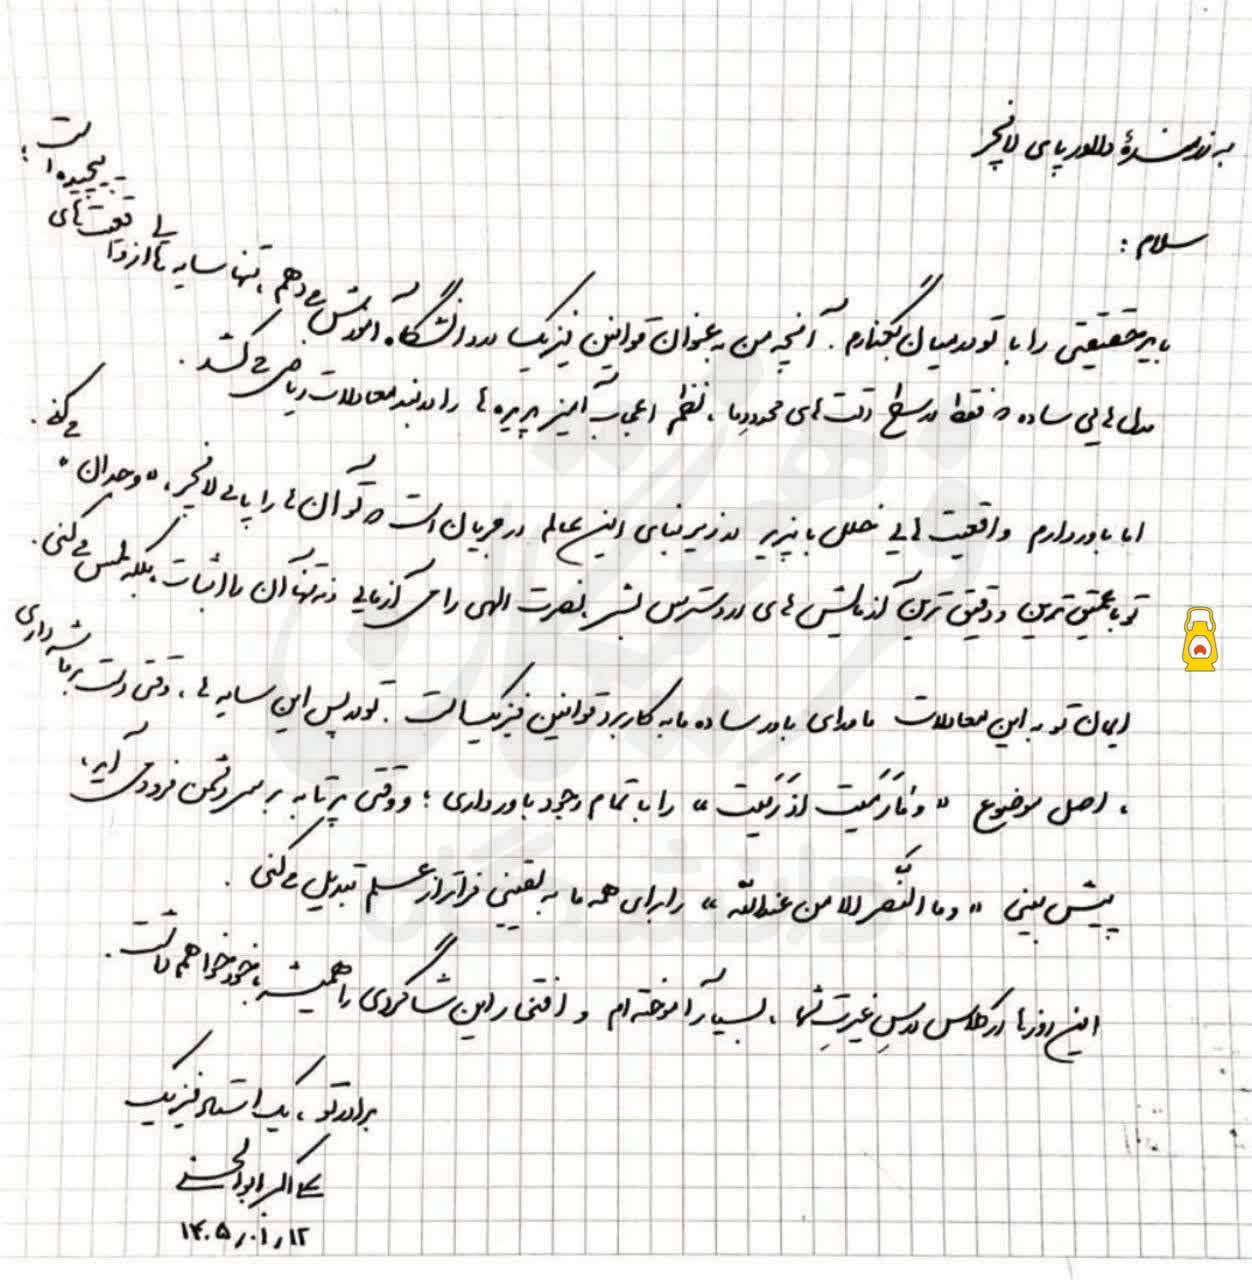 به رزمندهٔ دلاور پای لانچر
سلام :
باید حقیقتی را با تو در میان بگذارم. آنچه من به عنوان قوانین فیزیک در دانشگاه آموزش می‌دهم، تنها سایه‌هایی از واقعیت‌های پیچیده است؛
مدل‌هایی ساده که فقط در سطح دقت‌های محدود ما، نظم اعجاب‌آمیز پدیده‌ها را در بند معادلات ریاضی می‌کشد.
اما باور دارم واقعیت‌هایی خلل‌ناپذیر در زیربنای این عالم در جریان است که تو آن‌ها را پای لانچر، «وجدان» می‌کنی.
تو با عمیق‌ترین و دقیق‌ترین آزمایش‌های در دسترس بشر، نصرت الهی را می‌آزمایی و نه تنها آن را اثبات، بلکه لمس می‌کنی.
ایمان تو به این معادلات ماورای باور ساده ما به کاربرد قوانین فیزیک است. تو در پس این سایه‌ها، وقتی دست بر ماشه داری
، اصل موضوع «و مَا رَمَیتَ اِذ رَمَیتَ» را با تمام وجود باور داری؛ و وقتی پرتابه بر سر دشمن فرود می‌آید،
پیش‌بینی «و ما النَّصر الا من عندالله» را برای همه ما به یقینی فراتر از علم تبدیل می‌کنی.
این روزها در کلاس درسِ غیرتِ شما، بسیار آموخته‌ام و افتخار این شاگردی را همیشه با خود خواهم داشت.
برادر تو، یک استاد فیزیک
علی اکبر ابوالحسنی
۱۴۰۵/۰۱/۱۲